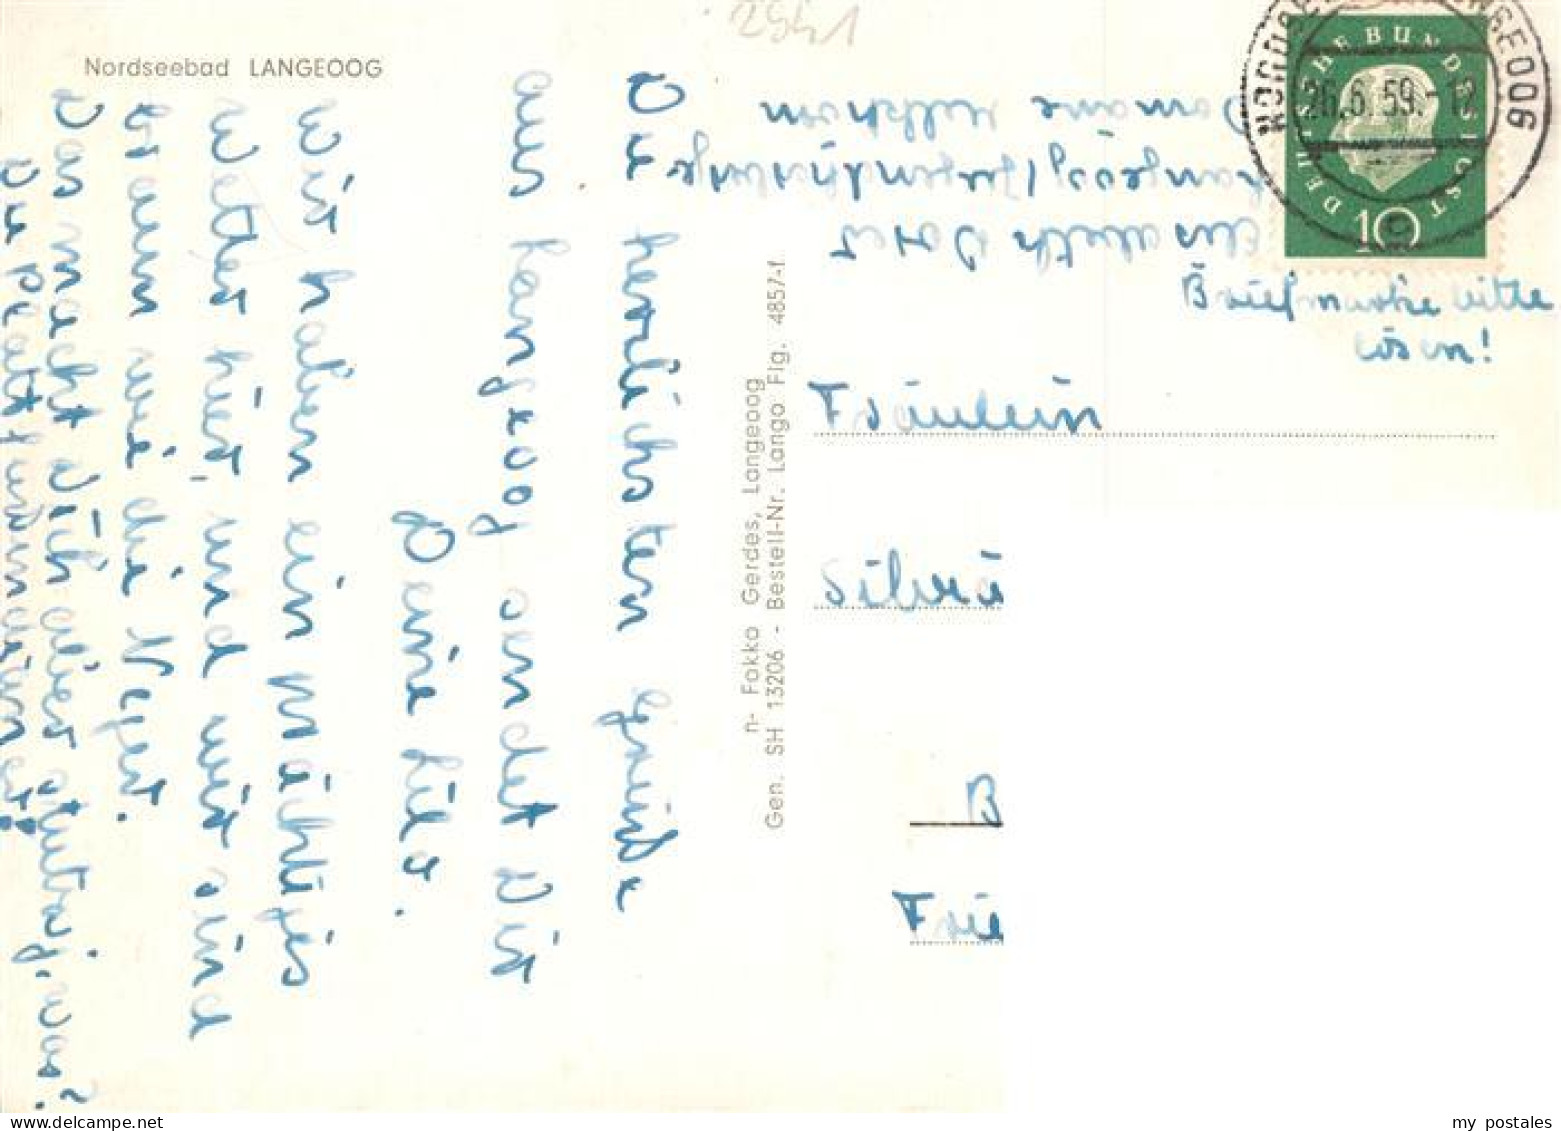 2541
Nordseebad LANGEOOG
NORDSEEBAD LANGEOOG
26.6.59.-12
DEUTSCHE BUNDESPOST
10
Elisabeth
Langeoog/Jugendherberge
Domäne Melkhörn
Briefmarke bitte
lösen!
Fräulein
Silvia
B
Frie
n- Fokko Gerdes, Langeoog
Gen. SH 13206 - Bestell-Nr. Lango Flg. 4857-f.
Die herzlichsten Grüße
aus Langeoog sendet Dir
Deine
Wir haben ein prächtiges
Wetter hier, und wir sind
braun wie die Neger.
Das macht Dich aber stutzig, was?
Du
my postales